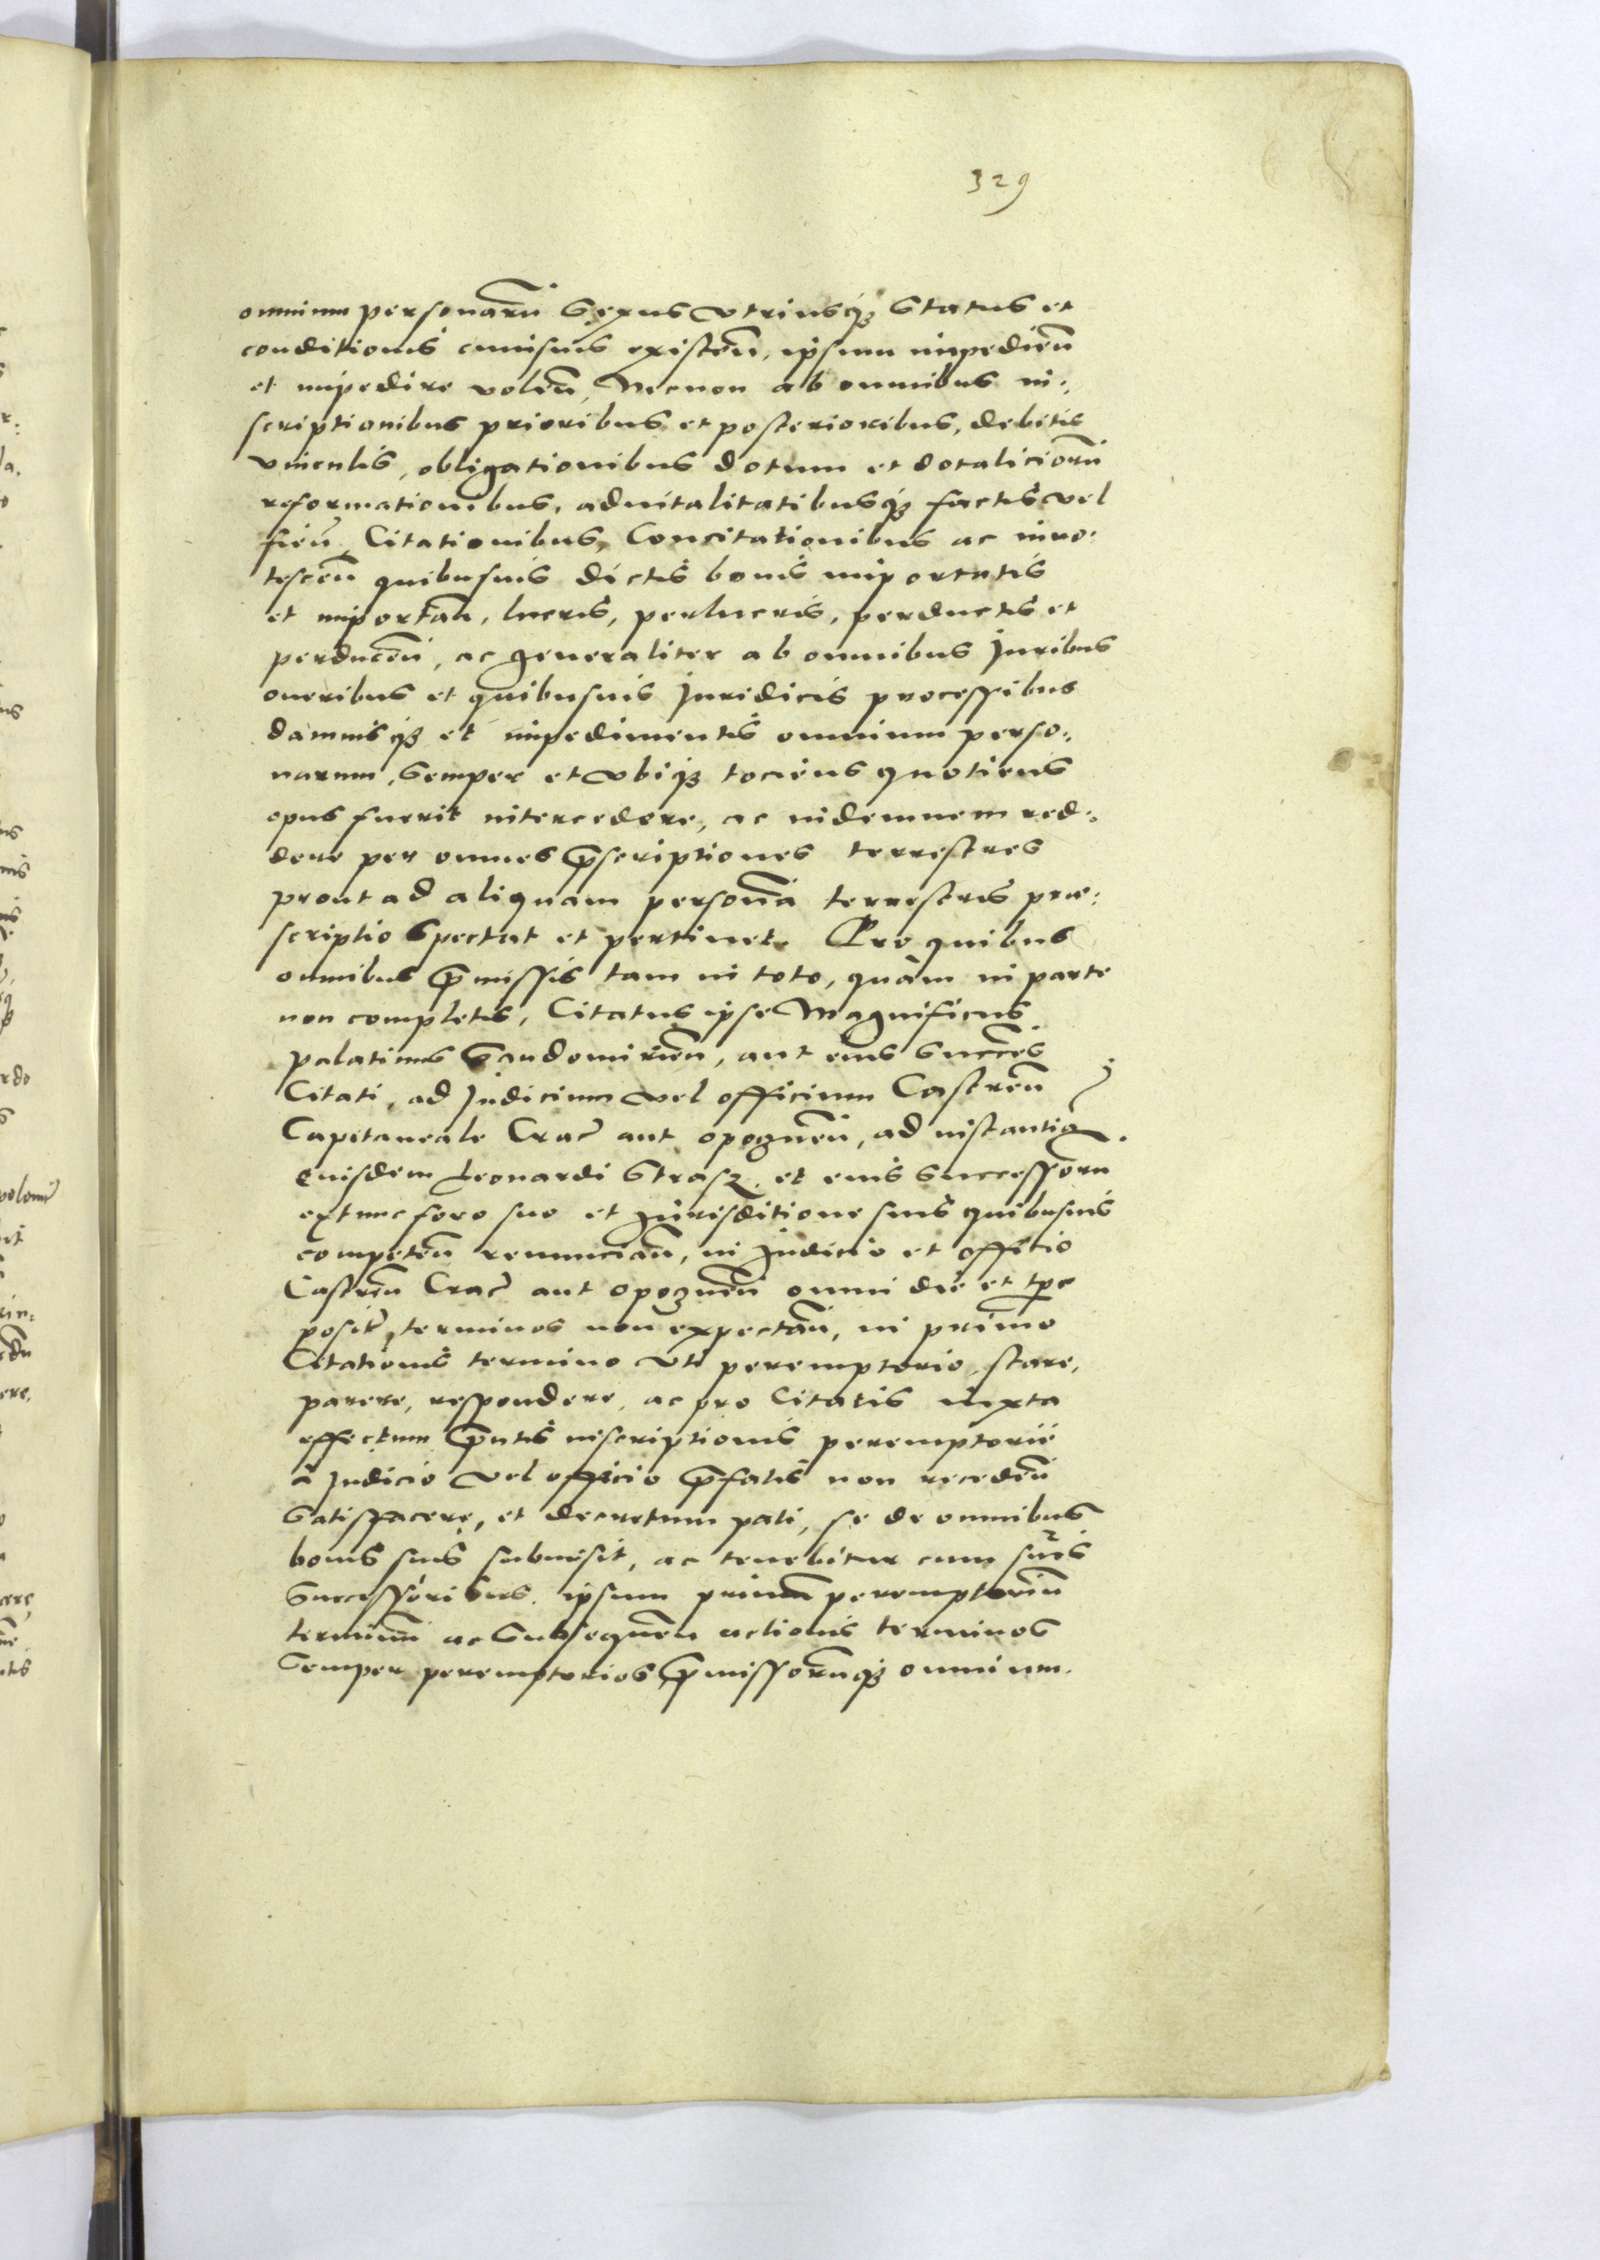 329
omnium personarũ Sexus vtriusq3 Status et
conditionis cuiusuis existeñ, ipsum impedieñ
et impedire voleñ, Necnon ab omnibus in:
scriptionibus prioribus et posterioribus, debitis
vinculis, obligationibus dotum et dotaliciorũ
reformationibus, aduitalitatibusq3 factis vel
fieñ, Citationibus, Concitationibus ac inno:
tesceñ quibusuis dictis bonis importatis
et importañ, lucris, perlucris, perductis et
perduceñ, ac generaliter ab omnibus Juribus
oneribus et quibusuis Juridicis processibus
damnisq3 et impedimentis omnium perso:
narum, Semper et vbiq3 tociens quotiens
opus fuerit intercedere, ac indemnem red:
dere per omnes p̃scriptiones terrestres
prout ad aliquam personã terrestris prae:
scriptio Spectat et pertinet. Pro quibus
omnibus p̃missis tam in toto, quàm in parte
non completis, Citatus ipse Magnificus
Palatinus Sandomirieñ, aut eius Succes̃
Citati, ad Judicium vel officium Castreñ
Capitaneale Crac̃ aut opogneñ, ad instantiã
eiusdem Leonardi Strasz, et eius Successorũ
extunc foro suo et Jurisditione suis quibusuis
competeñ renunciañ, in Judicio et officio
Castreñ Crac̃ aut opogneñ omni die et tp̃e
posit̃, terminos non expectañ, in primo
Citationis termino vti peremptorio, stare,
parere, respondere, ac pro Citatis iuxta
effectum p̃ntis inscriptionis peremptoriè
à Judicio vel officio p̃fatis non recedeñ
Satisfacere, et decretum pati, se de omnibus
bonis suis submisit, ac tenebitur cum suis
Successoribus. ipsum primũ peremptoriũ
terminũ ac Subsequeñ actionis terminos
Semper peremptorios p̃missorũq3 omnium.